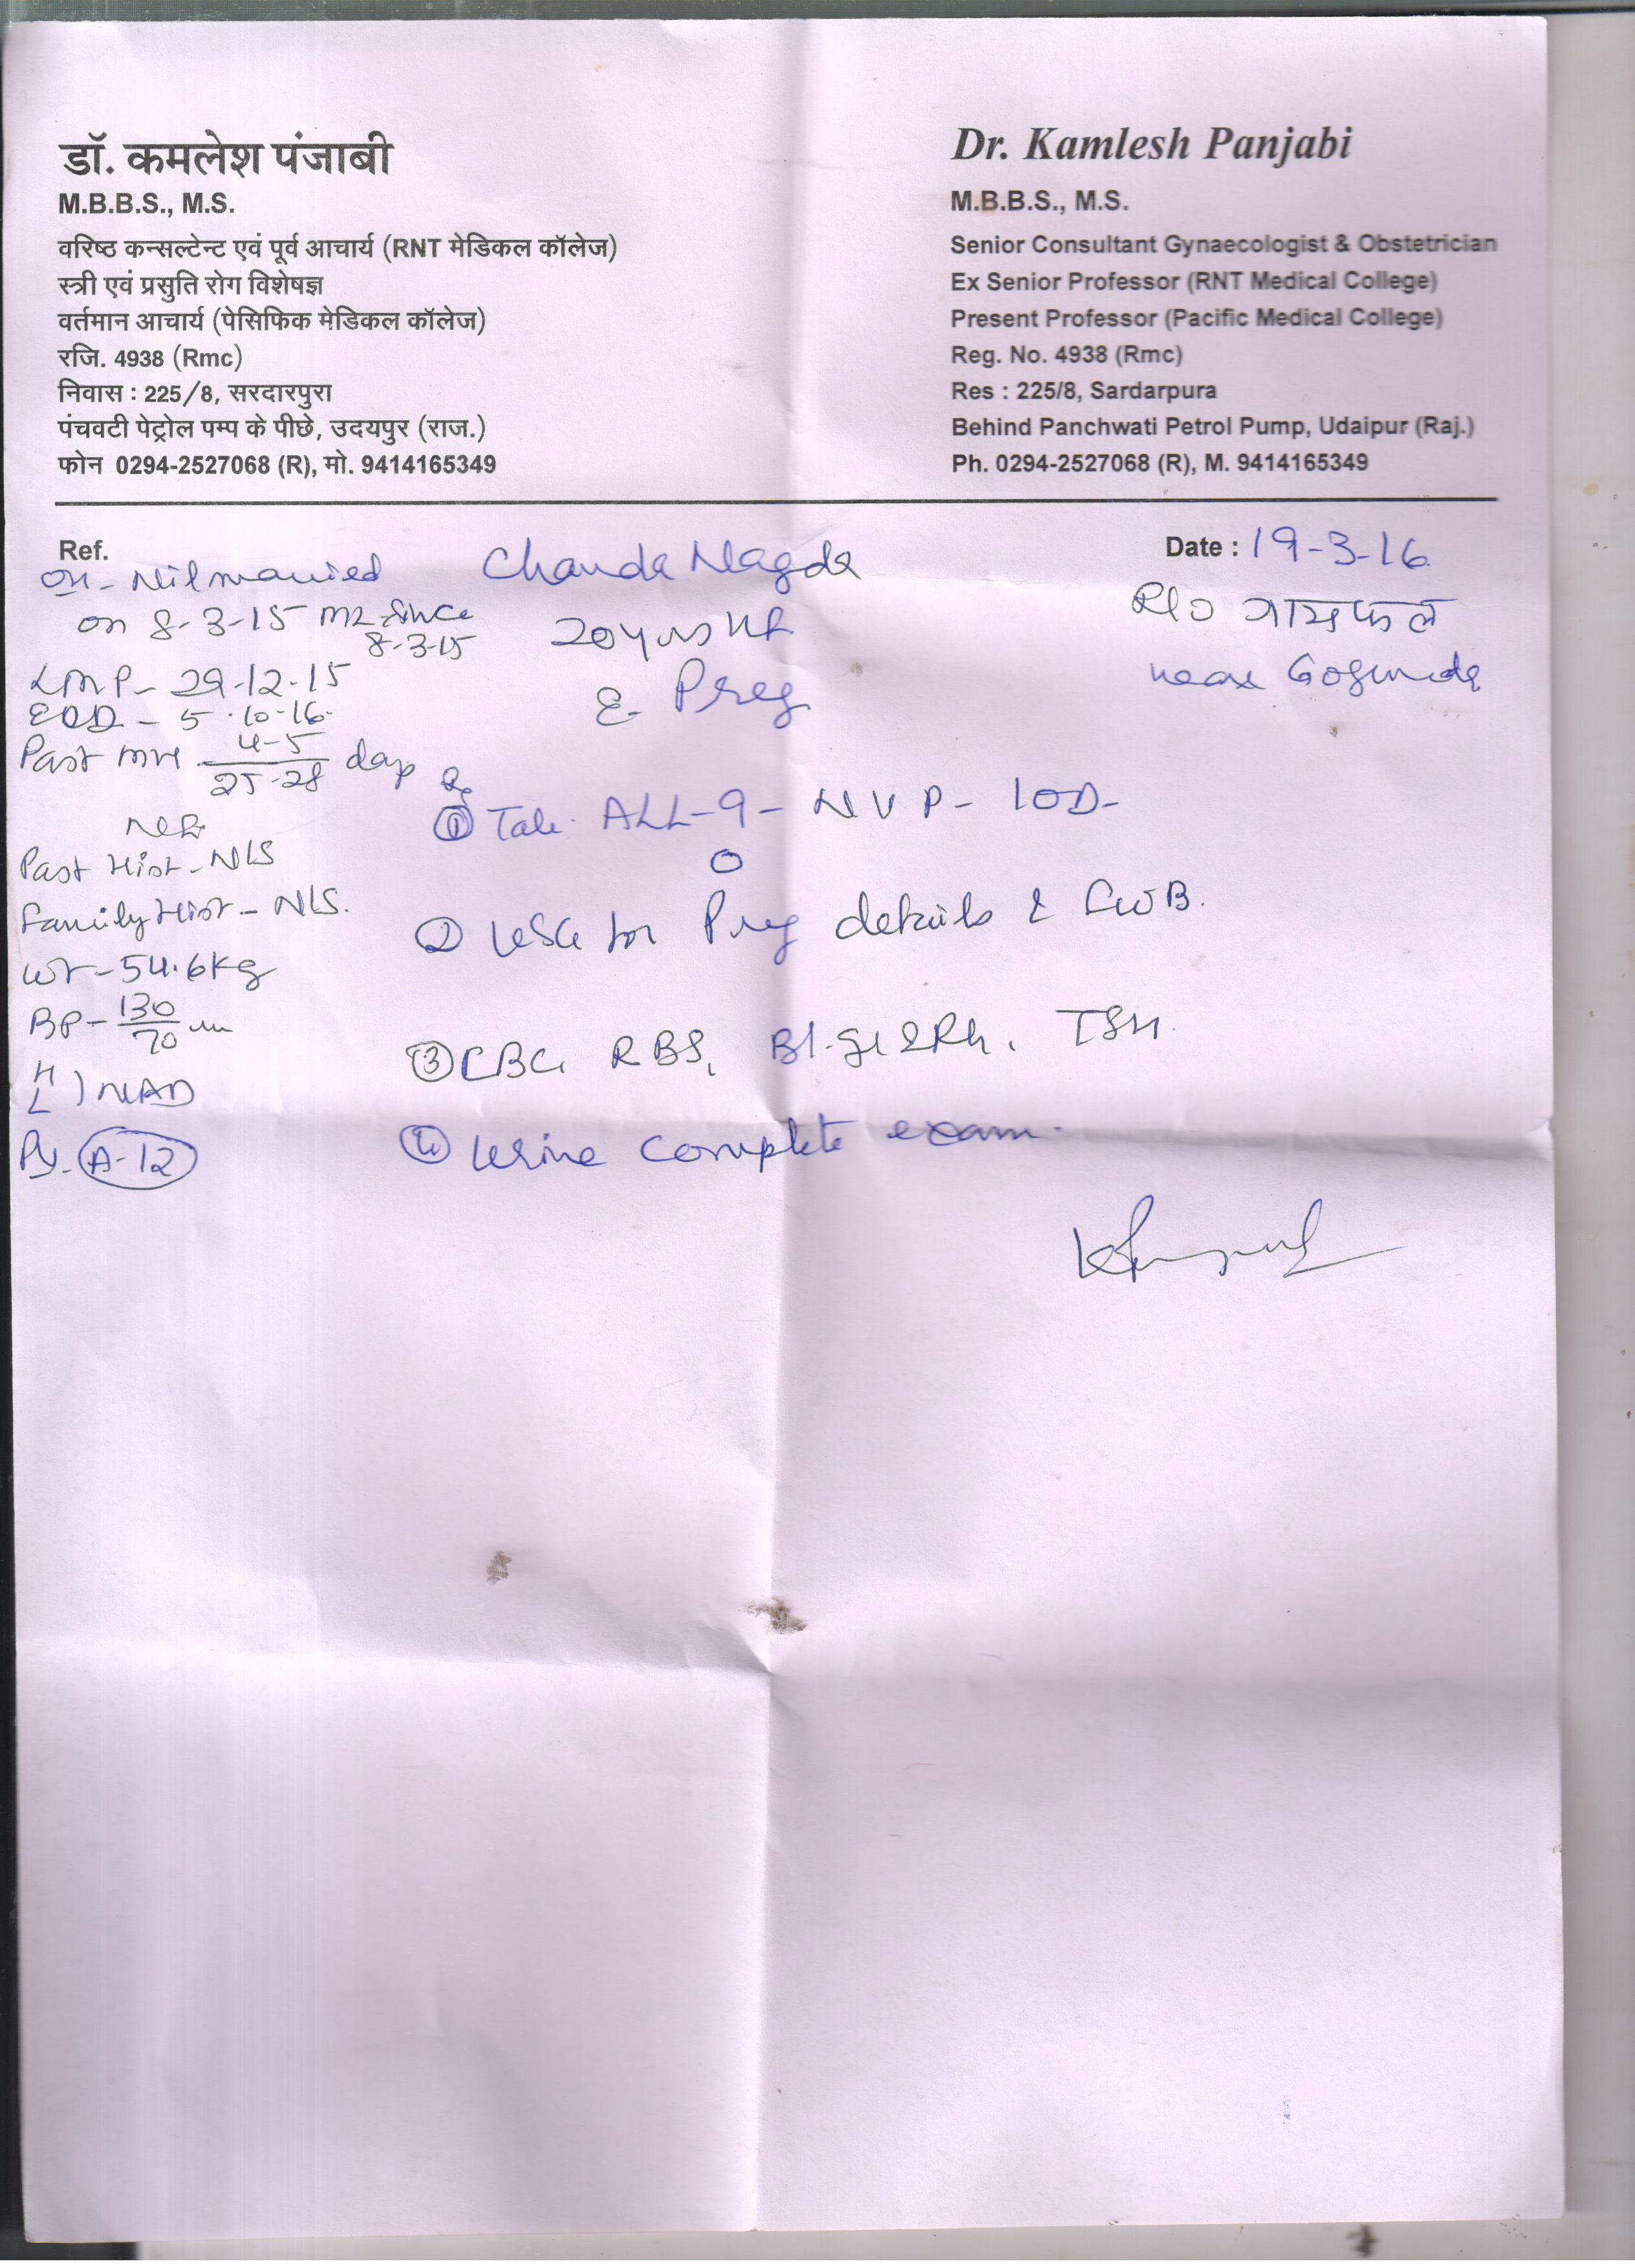 डॉ. कमलेश पंजाबी
M.B.B.S., M.S.
वरिष्ठ कन्सल्टेन्ट एवं पूर्व आचार्य (RNT मेडिकल कॉलेज)
स्त्री एवं प्रसुति रोग विशेषज्ञ
वर्तमान आचार्य (पेसिफिक मेडिकल कॉलेज)
रजि. 4938 (Rmc)
निवास : 225/8, सरदारपुरा
पंचवटी पेट्रोल पम्प के पीछे, उदयपुर (राज.)
फोन 0294-2527068 (R), मो. 9414165349
Dr. Kamlesh Panjabi
M.B.B.S., M.S.
Senior Consultant Gynaecologist & Obstetrician
Ex Senior Professor (RNT Medical College)
Present Professor (Pacific Medical College)
Reg. No. 4938 (Rmc)
Res : 225/8, Sardarpura
Behind Panchwati Petrol Pump, Udaipur (Raj.)
Ph. 0294-2527068 (R), M. 9414165349
Ref.
Date : 19-3-16
Nil married
on 8-3-15 since
8-3-15
LMP - 29-12-15
EDD - 5-10-16
Past MH 4-5
25-28 days
Past Hist - NLS
Family Hist - NLS.
Wt - 54.6kg
BP - 130
70
H
L ) NAD
A-12
Chanda Nagda
20yrs
Preg
R/O
near Gogunda
① Tab. ALL-9 - NVP - 1OD-
② USG for Preg details & FWB.
③ CBC, RBS, Bl. gr & Rh. TSH.
④ Urine complete exam.